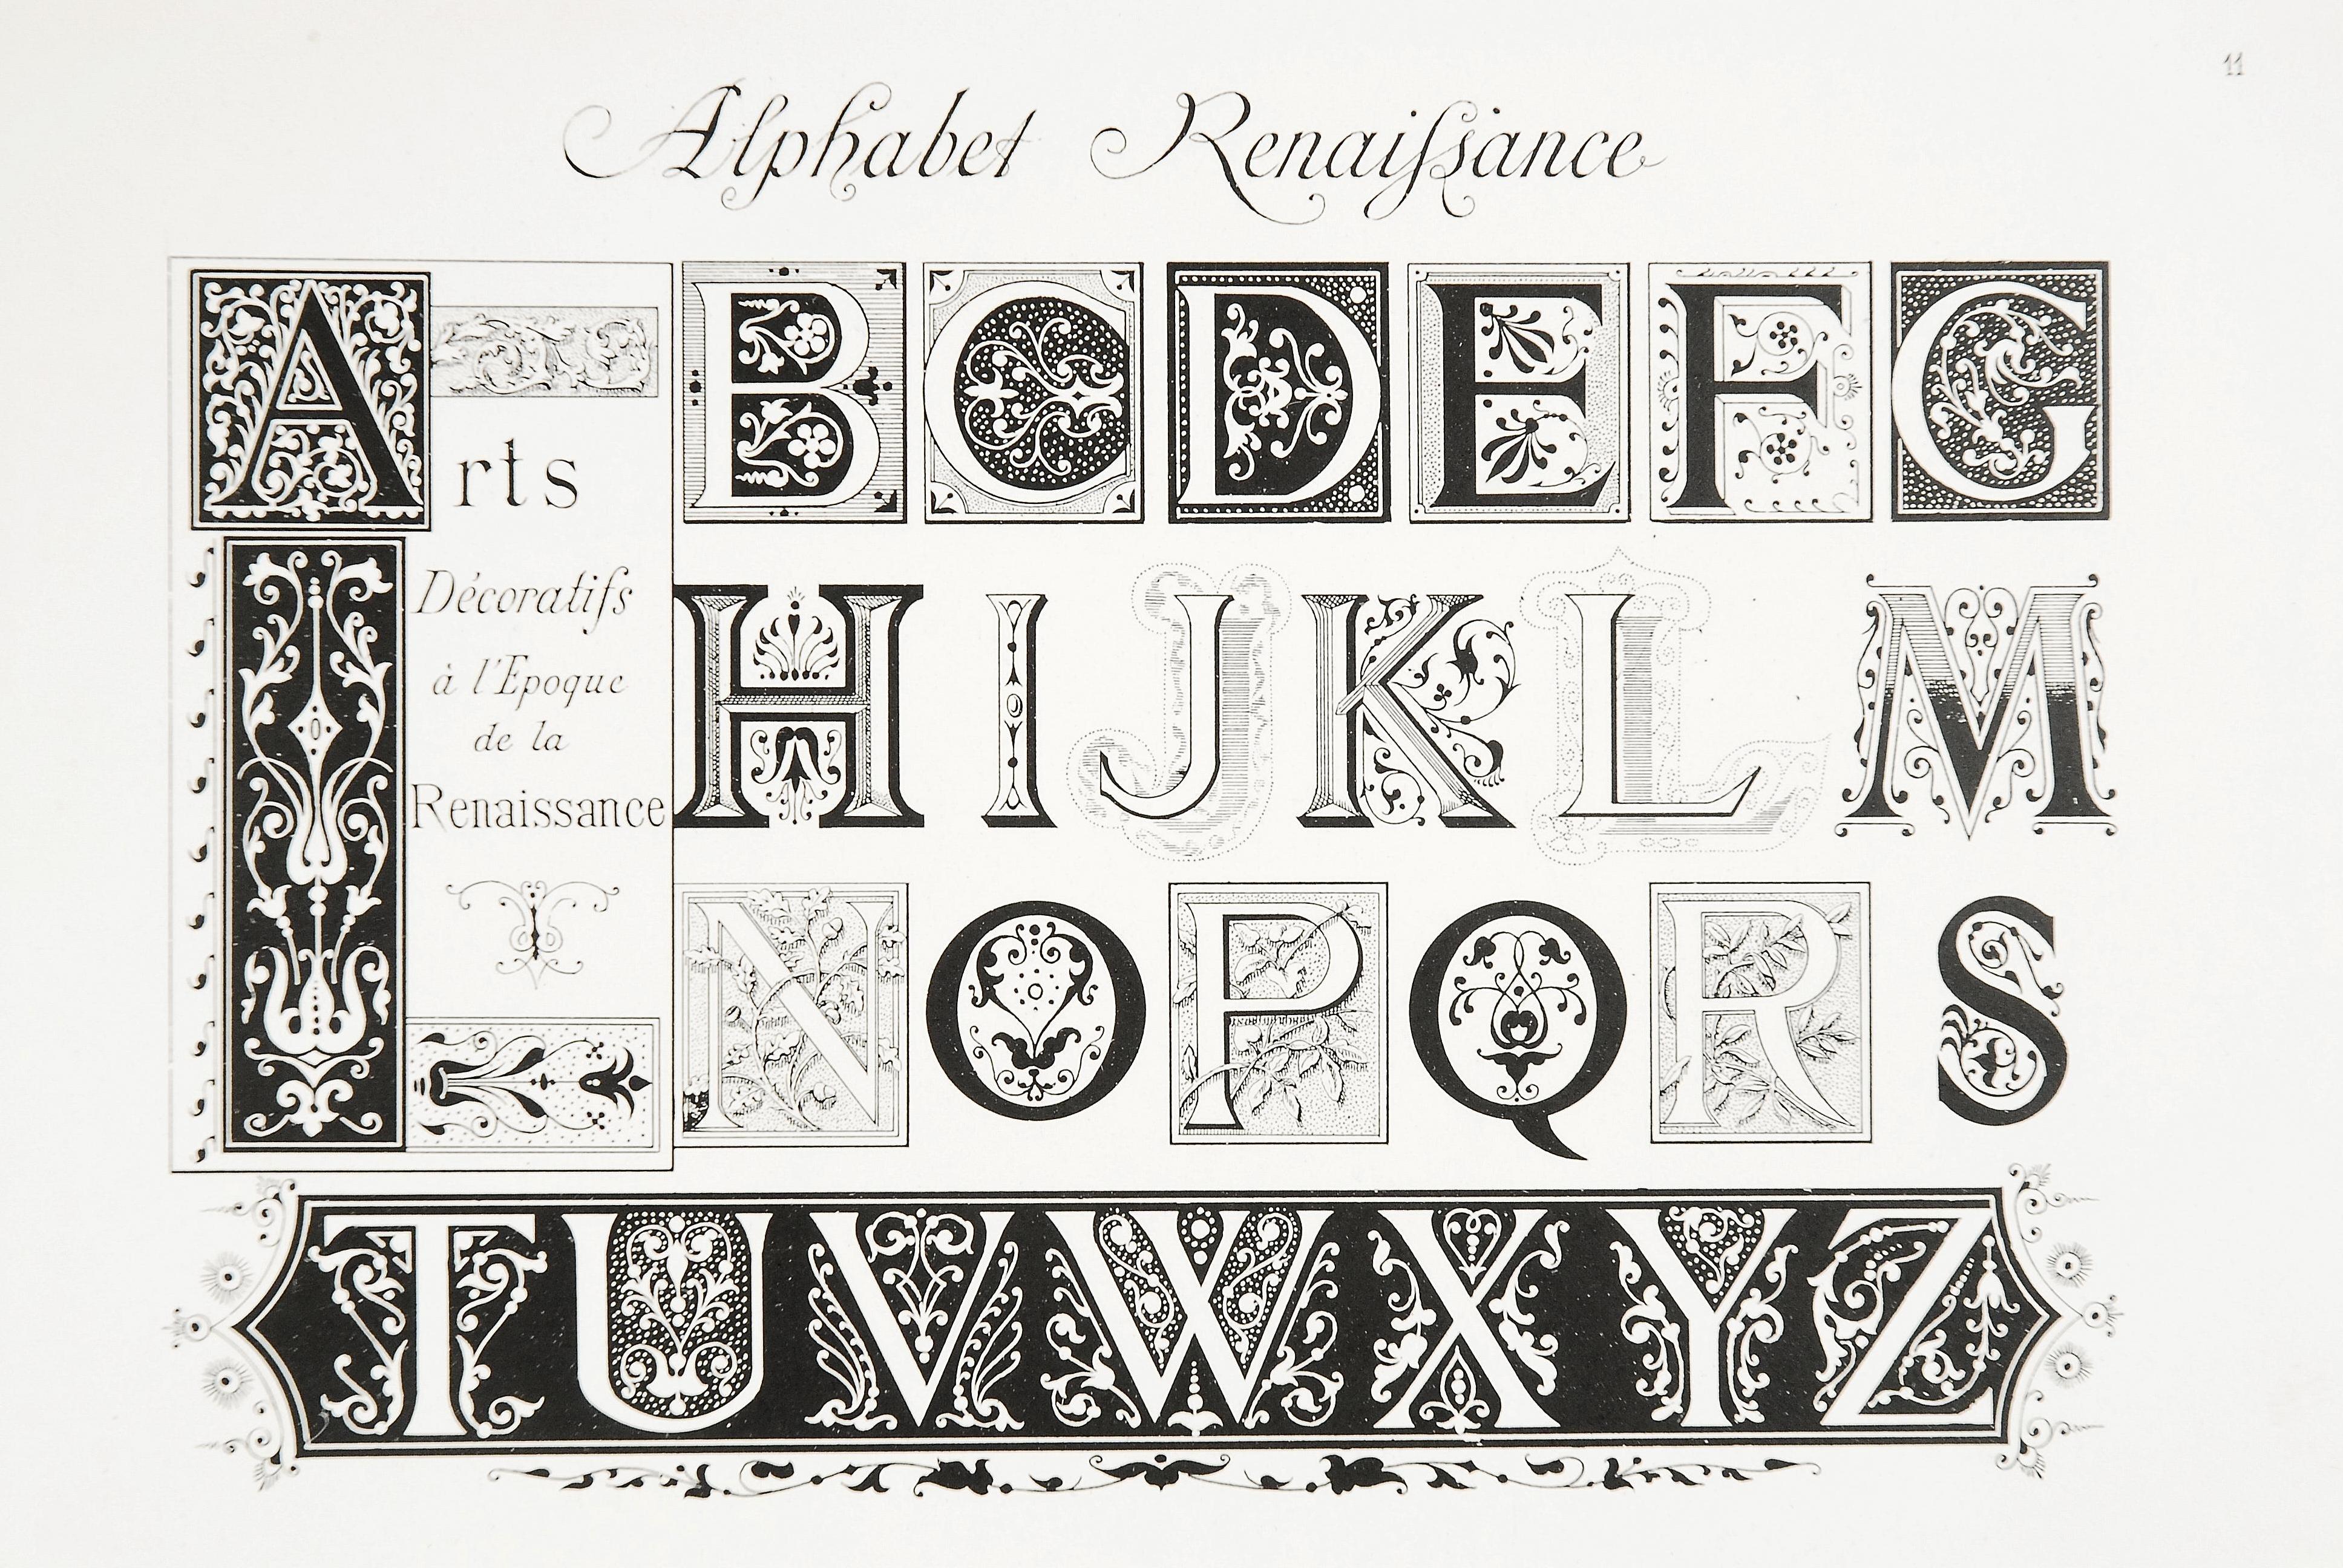 11
Alphabet Renaiſsance
Arts
Décoratifs
à l'Epoque
de la
Renaissance
B C D E F G
H I J K L M
N O P Q R S
T U V W X Y Z